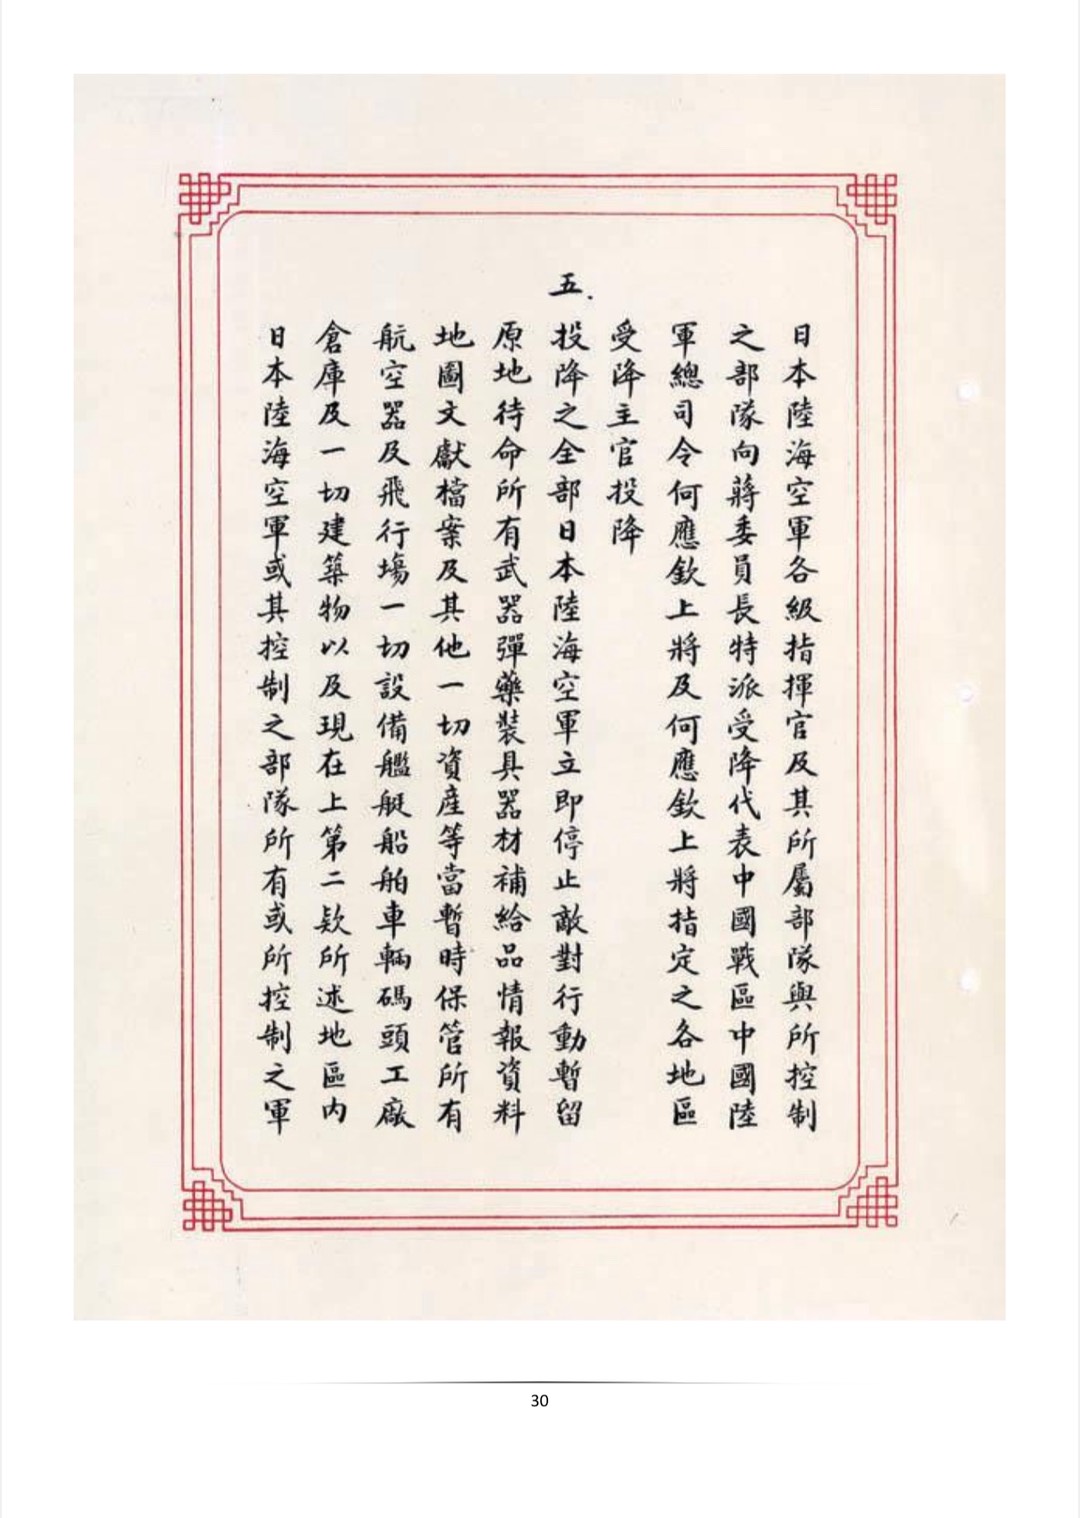 日本陸海空軍各級指揮官及其所屬部隊與所控制
之部隊向蔣委員長特派受降代表中國戰區中國陸
軍總司令何應欽上將及何應欽上將指定之各地區
受降主官投降
五.投降之全部日本陸海空軍立即停止敵對行動暫留
原地待命所有武器彈藥裝具器材補給品情報資料
地圖文獻檔案及其他一切資產等當暫時保管所有
航空器及飛行場一切設備艦艇船舶車輛碼頭工廠
倉庫及一切建築物以及現在上第二款所述地區內
日本陸海空軍或其控制之部隊所有或所控制之軍
30